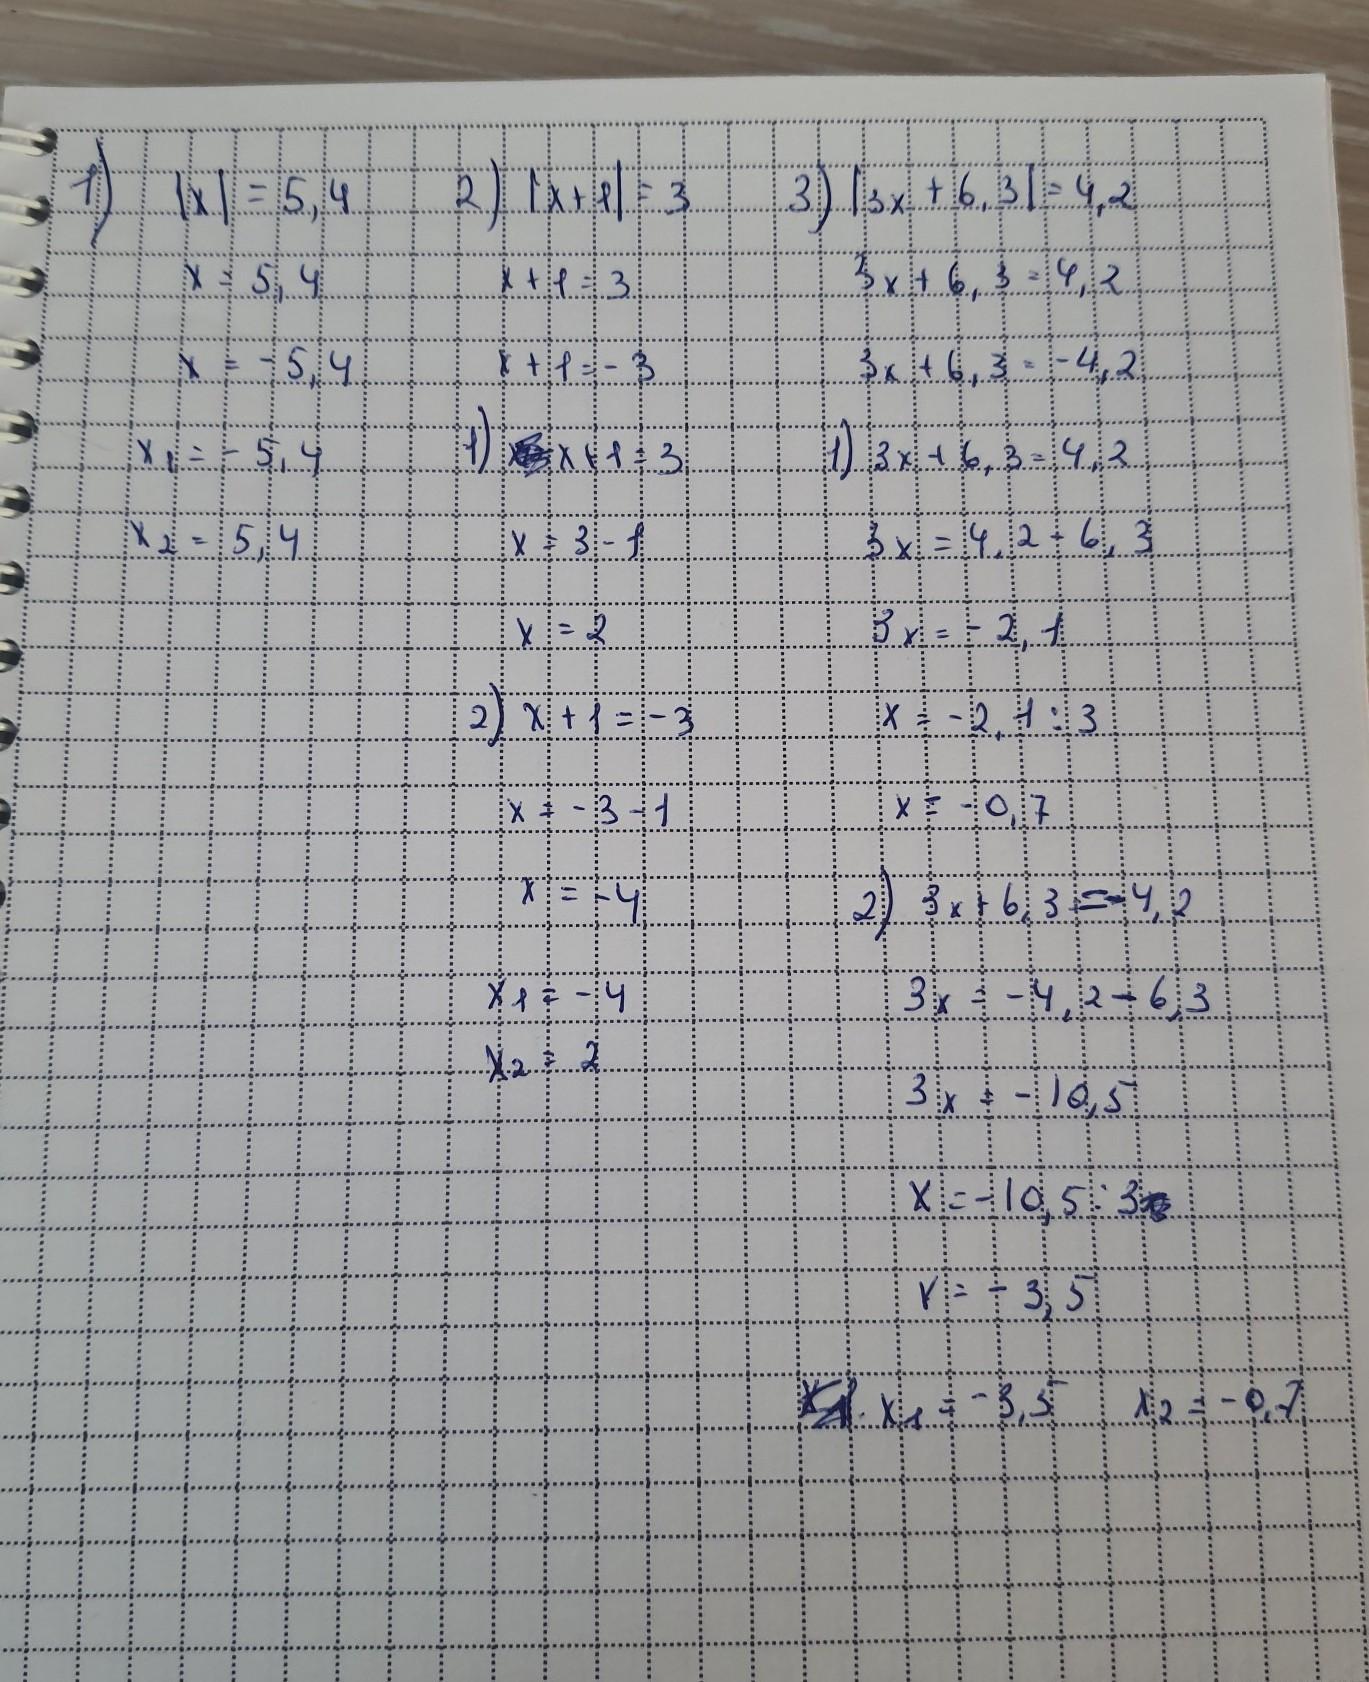 1) |x| = 5,4
x = 5,4
x = -5,4
x1 = -5,4
x2 = 5,4
2) |x+1| = 3
x+1 = 3
x+1 = -3
1) x+1 = 3
x = 3-1
x = 2
2) x+1 = -3
x = -3-1
x = -4
x1 = -4
x2 = 2
3) |3x+6,3| = 4,2
3x+6,3 = 4,2
3x+6,3 = -4,2
1) 3x+6,3 = 4,2
3x = 4,2-6,3
3x = -2,1
x = -2,1:3
x = -0,7
2) 3x+6,3 = -4,2
3x = -4,2-6,3
3x = -10,5
x = -10,5:3
x = -3,5
x1 = -3,5 x2 = -0,7